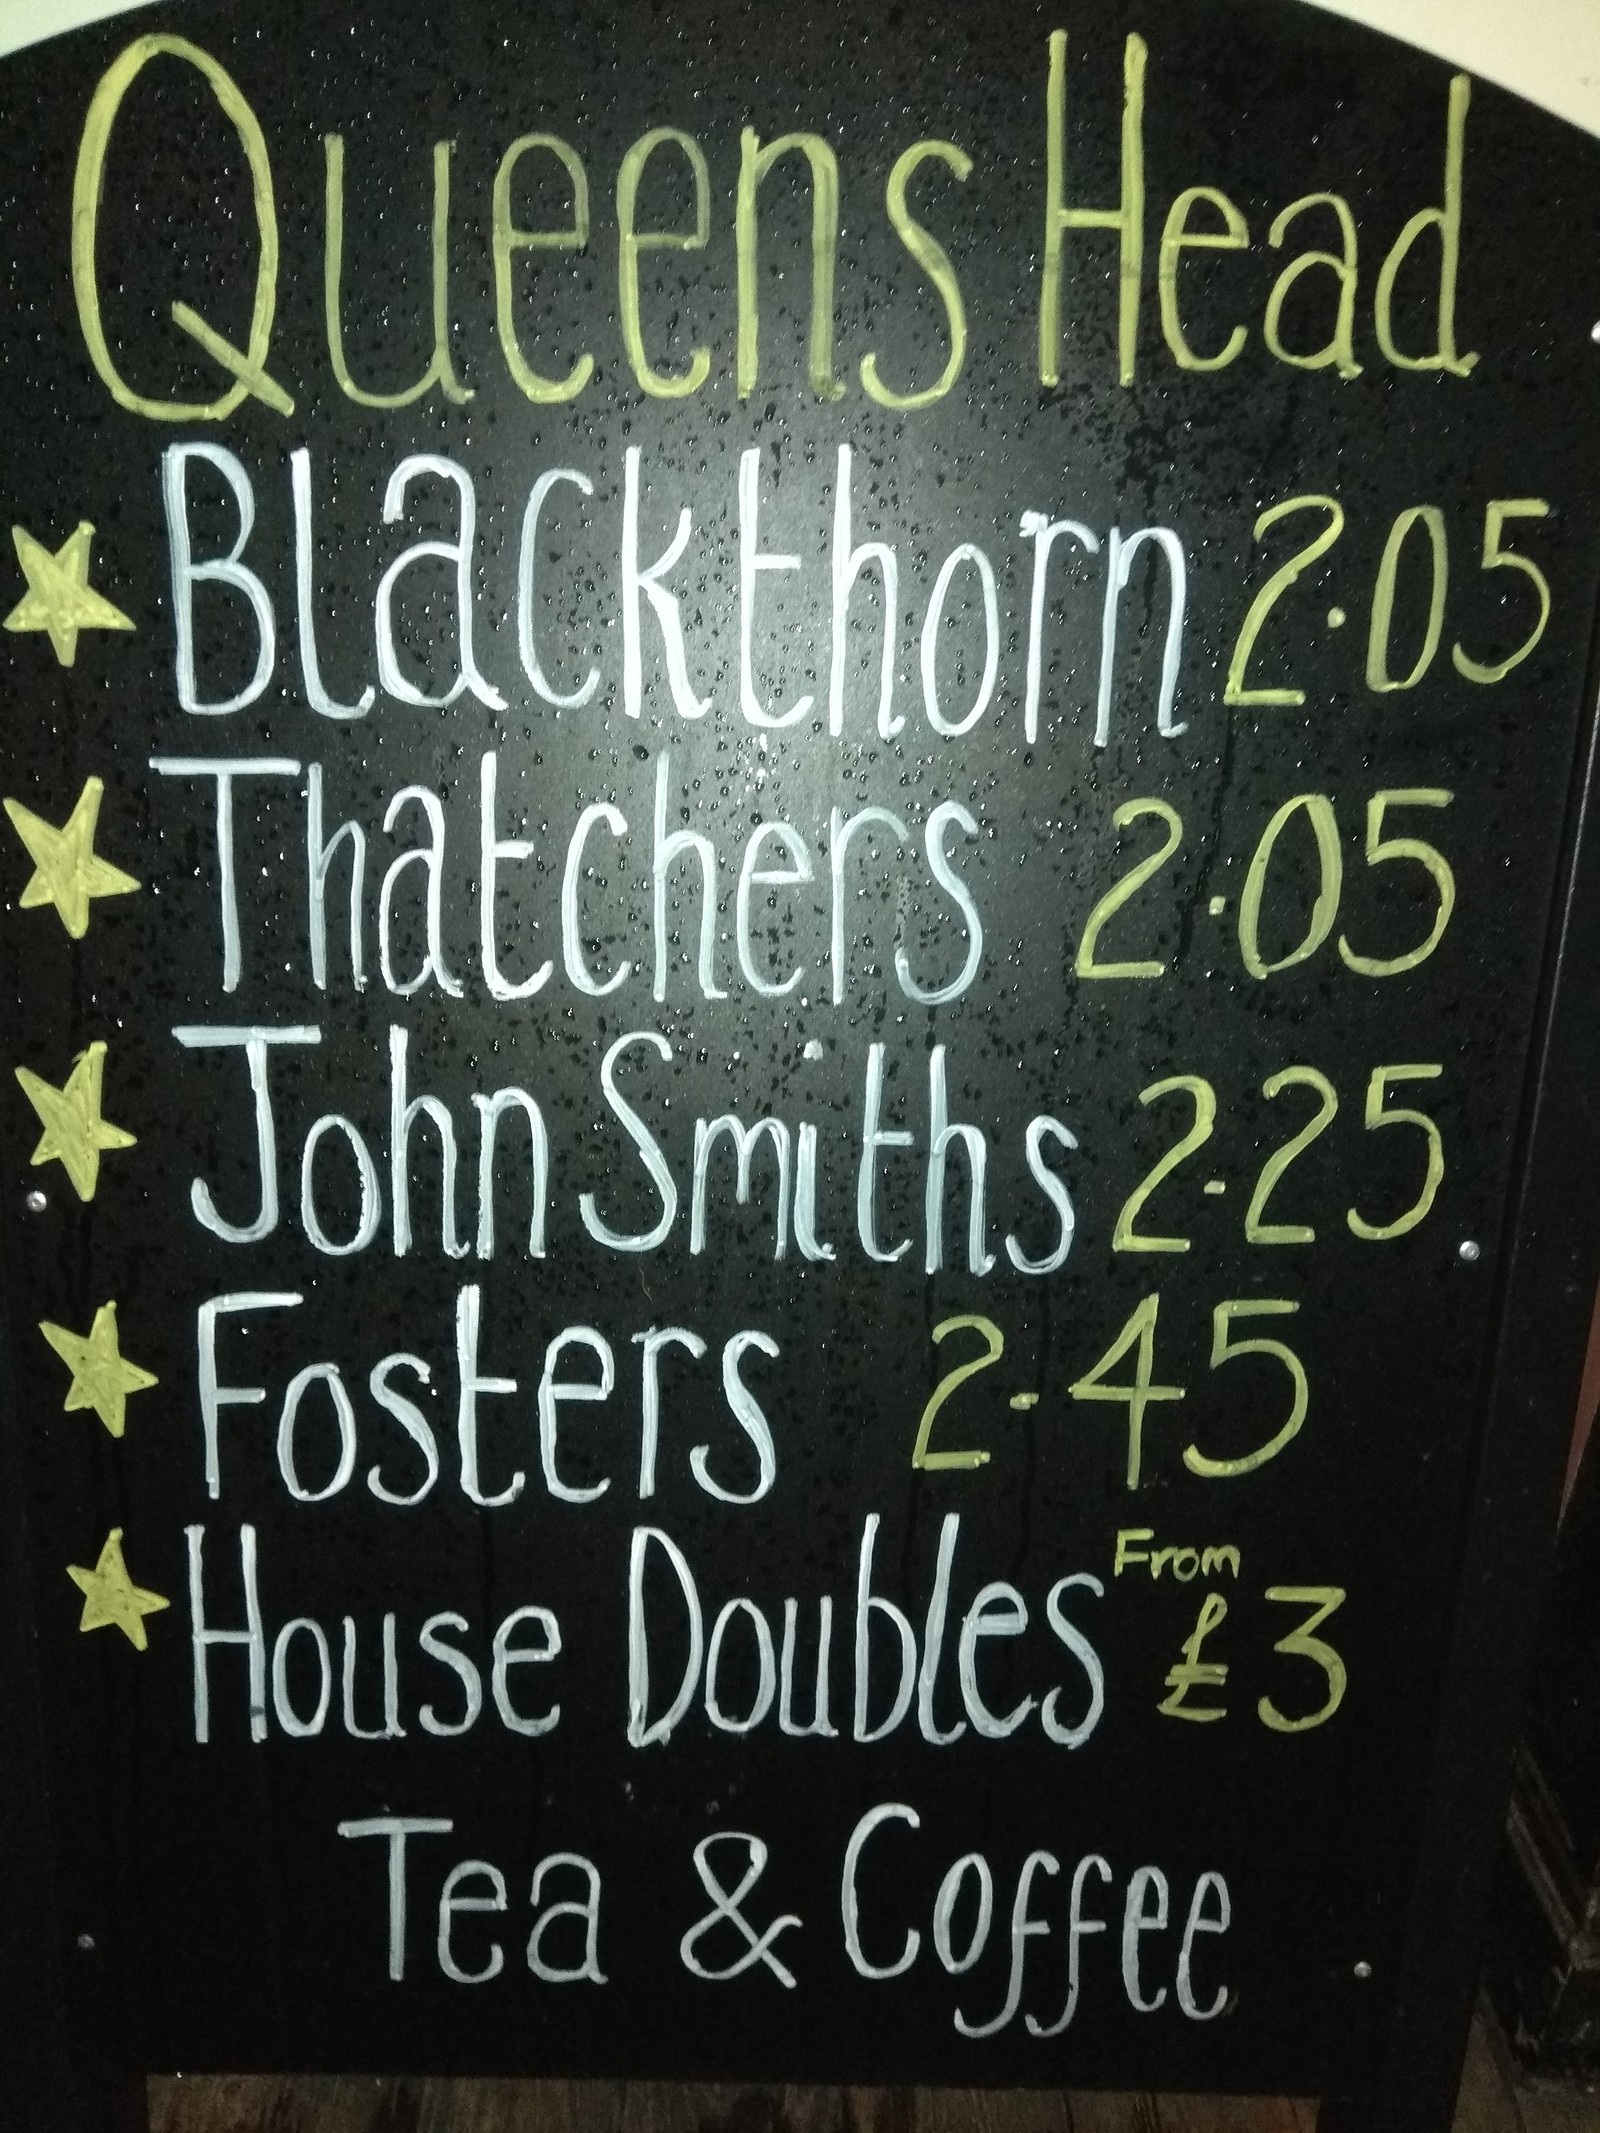 Queens Head
Blackthorn 2.05
Thatchers 2.05
John Smiths 2.25
Fosters 2.45
House Doubles From £3
Tea & Coffee